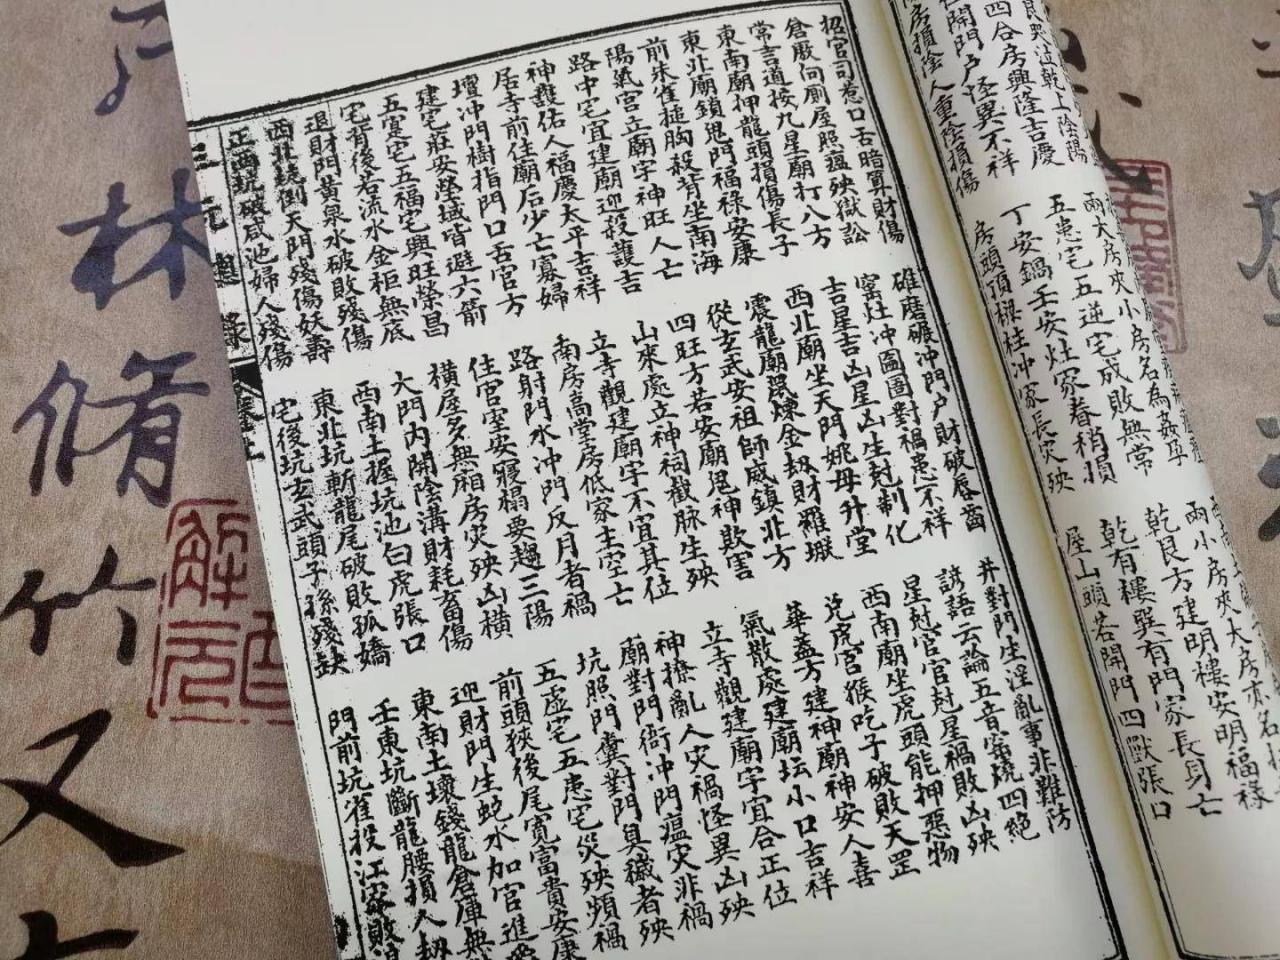 兩小房夾大房亦名
四合房興隆吉慶
五患宅五逆宅成敗無常
乾艮方建明樓安明福禄
開門户怪異不祥
丁安鍋壬安灶家眷稍損
乾有樓巽有門家長身亡
房損陰人重陰損傷
房頭頂樑柱冲家長灾殃
屋山頭若開門四獸張口
招官司惹口舌暗算財傷
碓磨碾冲門户財破唇齒
井對門生淫亂事非難防
倉厫向廁屋照瘟殃獄訟
窰灶冲圖圖對禍患不祥
諺語云論五音窰燒四絶
常吉道按九星廟打八方
吉星吉凶星凶生尅制化
星尅官官尅星禍敗凶殃
東南廟押龍頭損傷長子
西北廟坐天門姚母升堂
西南廟坐虎頭能押惡物
東北廟鎖鬼門福禄安康
震龍廟混煉金劫財羅堠
兑虎宮猴吃子破敗天罡
前朱雀搥胸殺背坐南海
從玄武安祖師威鎮北方
華盖方建神廟神安人喜
陽氣宮立廟宇神旺人亡
四旺方若安廟鬼神欺害
氣散處建廟坛小口吉祥
路中宅宜建廟迎投護吉
山來處立神祠截脉生殃
立寺觀建廟宇宜合正位
神護佑人福慶太平吉祥
立寺觀建廟宇不宜其位
神撩亂人灾禍怪異凶殃
居寺前住廟后少亡寡婦
南房高堂房低家主空亡
廟對門街冲門瘟灾非禍
壇冲門樹指門口舌官方
路射門水冲門反月者禍
坑照門糞對門臭穢者殃
建宅莊安塋域皆避六箭
住官室安寢榻要趨三陽
五虛宅五患宅災殃頻禍
五寔宅五福宅興旺榮昌
横屋多無厢房灾殃凶横
前頭狹後尾寬富貴安康
宅背後若流水金柜無底
大門内開陰溝財耗畜傷
迎財門生蛇水加官進
退財門黄泉水破敗殘傷
西南土握坑池白虎張口
東南土壞錢龍倉庫無
西北坑倒天門殘傷妖壽
東北坑斬龍尾破敗孤嬌
壬東坑斷龍腰損人劫
正西坑破咸池婦人殘傷
宅後坑玄武頭子孫殘缺
門前坑雀投江家敗
三元總録
林
脩
竹
又
解元